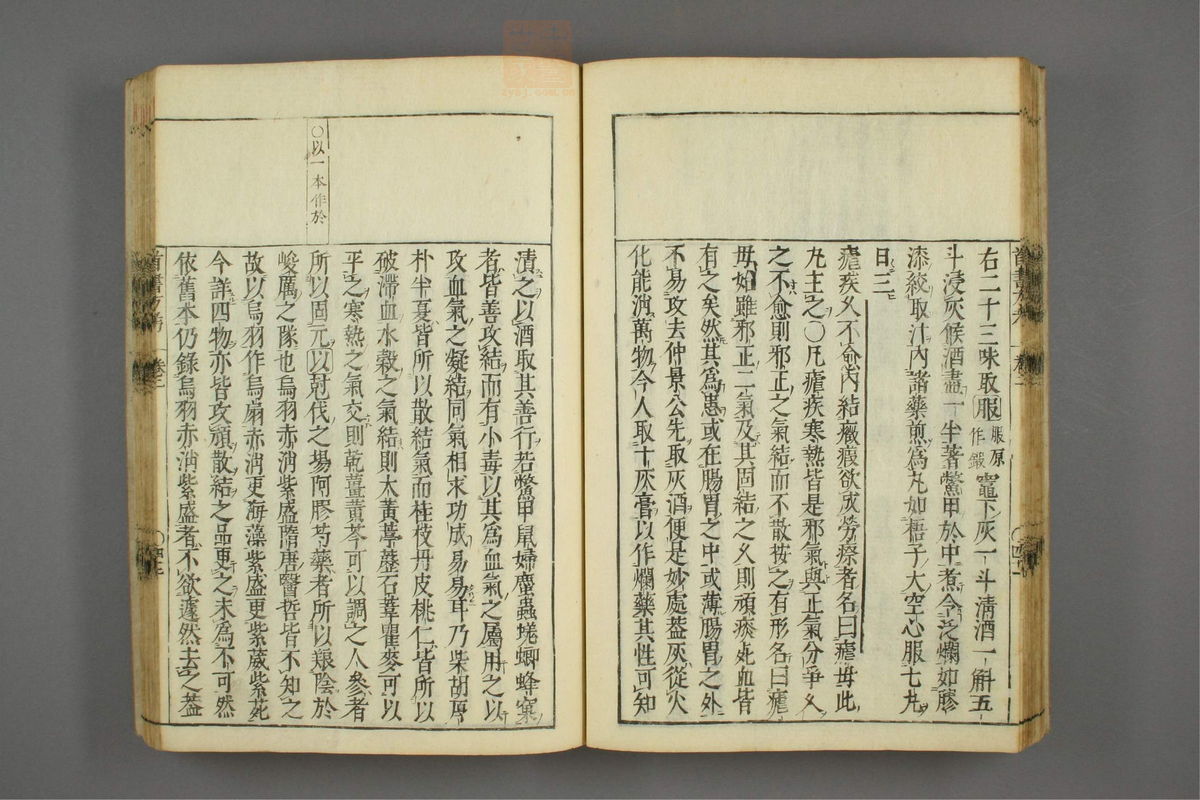 右二十三味取服服原作鍛竈下灰一斗清酒一斛五
斗浸灰候酒盡一半著鱉甲於中煮令泛爛如膠
漆絞取汁內諸藥煎為丸如梧子大空心服七丸
日三
瘧疾久不愈內結癥瘕欲成勞瘵者名曰瘧母此
丸主之〇凡瘧疾寒熱皆是邪氣與正氣分爭久
之不愈則邪正之氣結而不散按之有形名曰瘧
母始雖邪正二氣及其固結之久則頑痰死血皆
有之矣然其為患或在腸胃之中或薄腸胃之外
不易攻去仲景公先取灰酒便是妙處蓋灰從火
化能消萬物今人取十灰膏以作爛藥其性可知
漬之以酒取其善行若鱉甲鼠婦䗪蟲蜣蜋蜂窠
者皆善攻結而有小毒以其為血氣之屬用之以
攻血氣之凝結同氣相求功成易易耳乃柴胡厚
朴半夏皆所以散結氣而桂枝丹皮桃仁皆所以
破滯血水穀之氣結則大黃葶藶石葦瞿麥可以
平之寒熱之氣交則乾薑黃芩可以調之人參者
所以固元以尅伐之場阿膠芍藥者所以養陰於
峻厲之隊也烏羽赤消紫盛隋唐醫哲皆不知之
故以烏羽作烏扇赤消更海藻紫盛更紫葳紫菀
今詳四物亦皆攻頑散結之品更之未為不可然
依舊本仍錄烏羽赤消紫盛者不欲遽然去之蓋
〇以一本作於